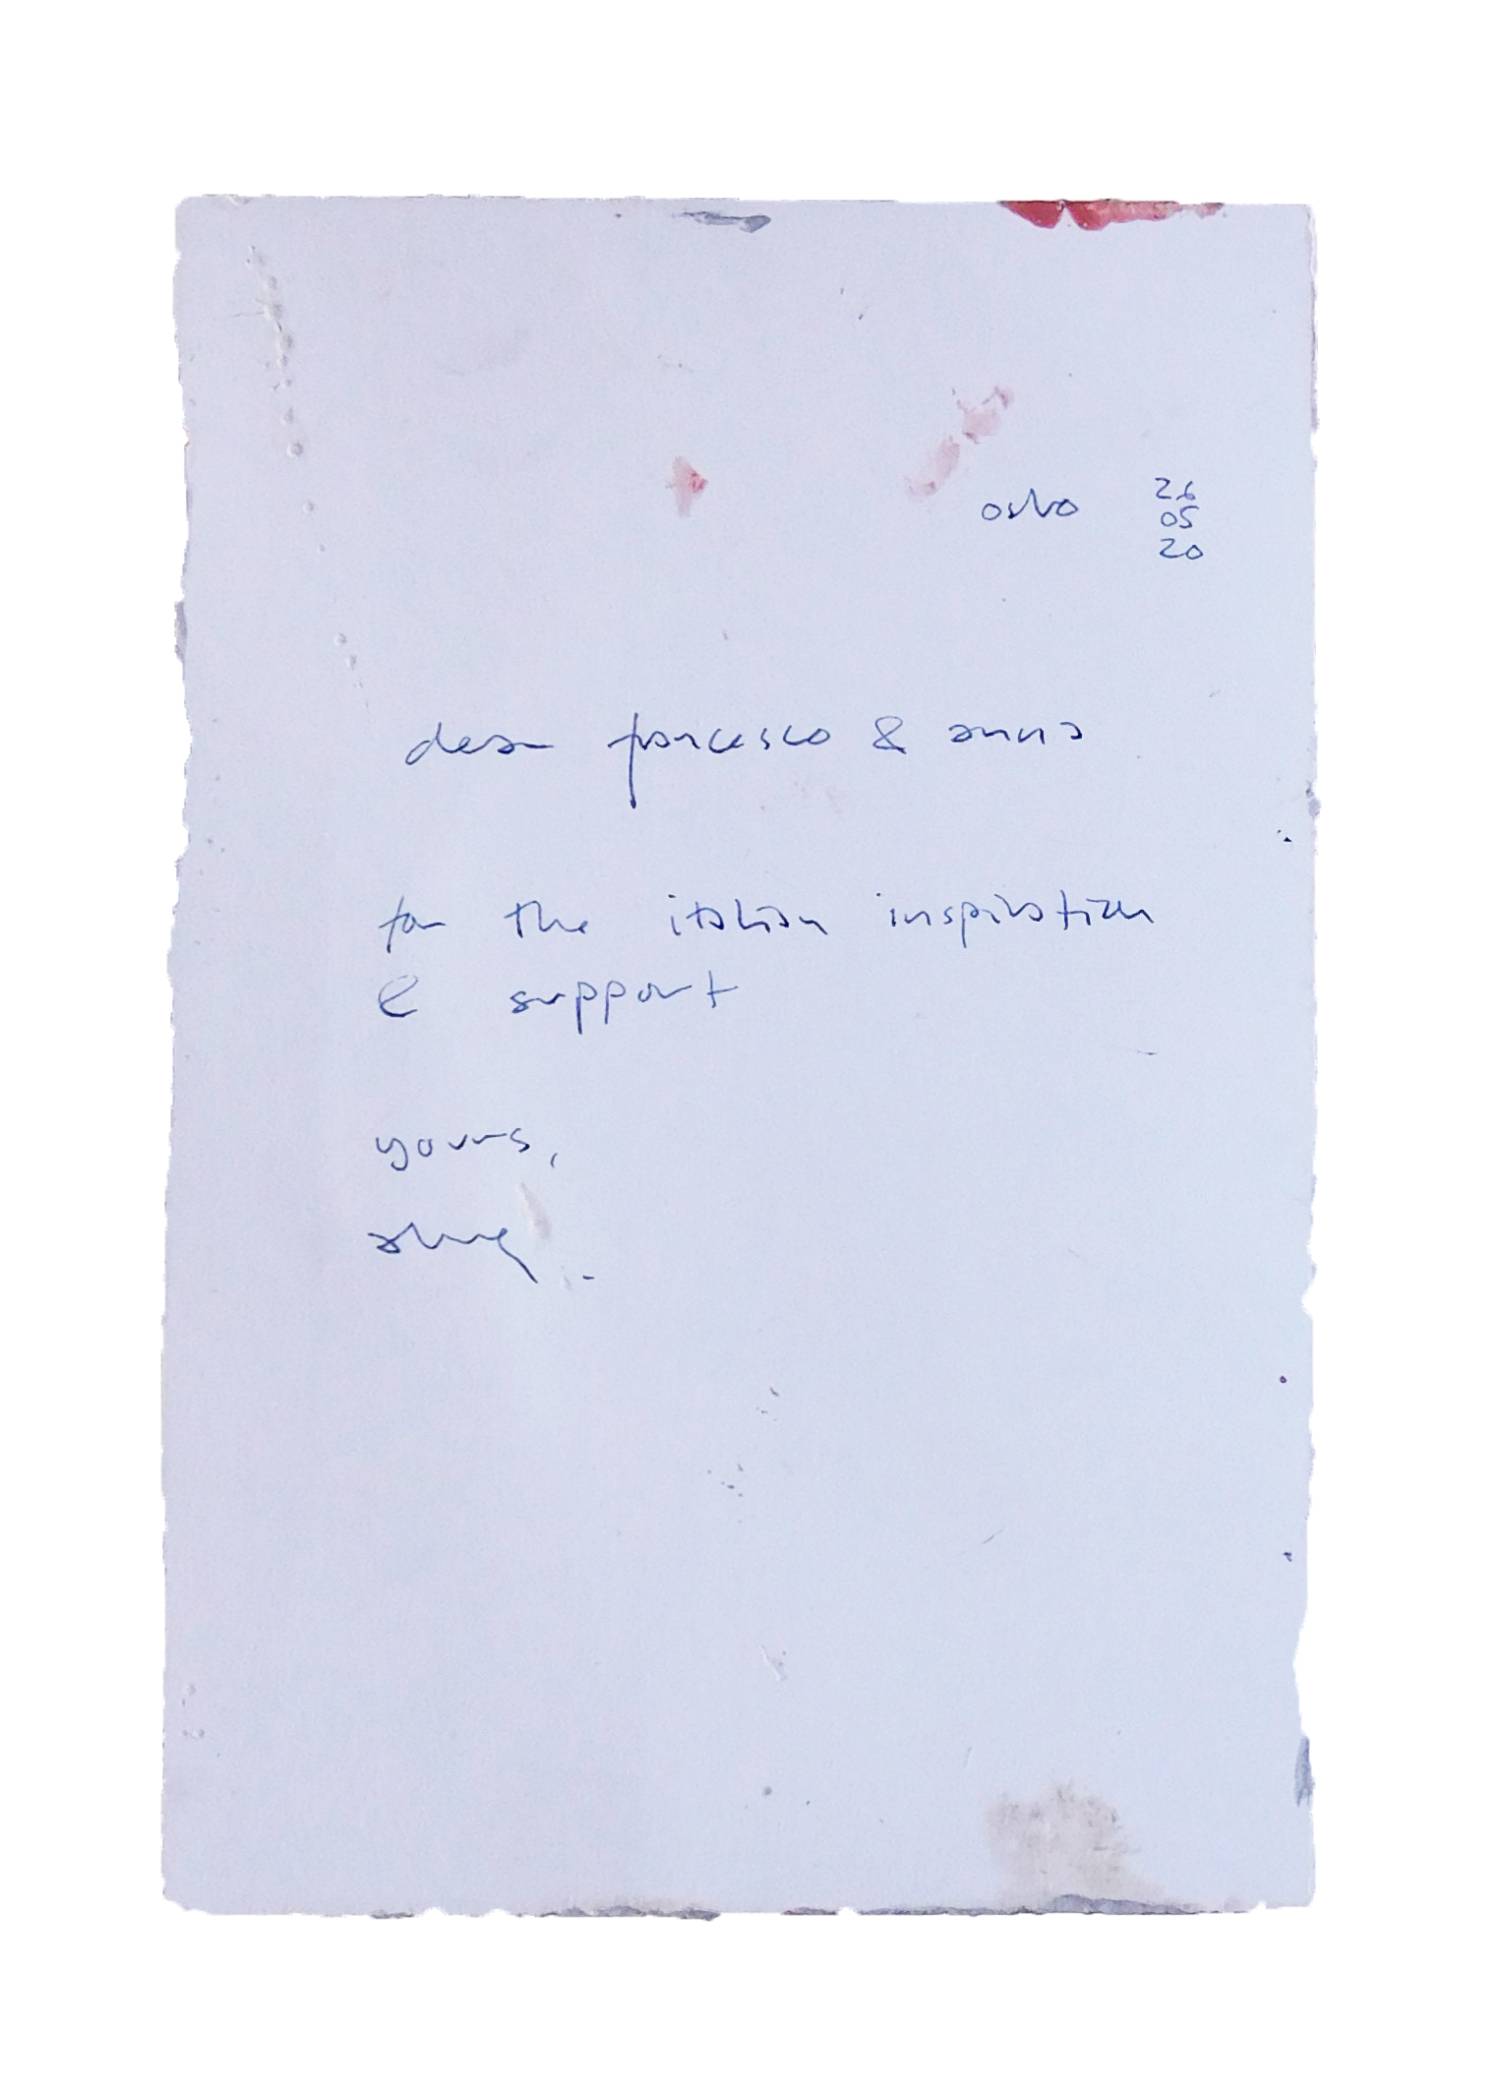 oslo 26
05
20
dear francesco & anna
for the italian inspiration
e support
yours,